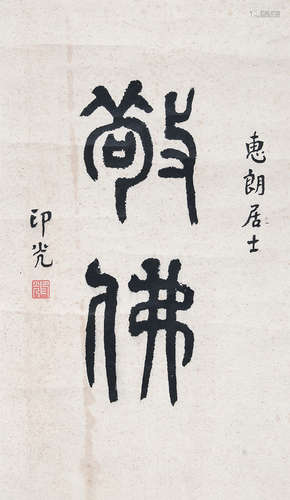 惠朗居士
敬佛
印光